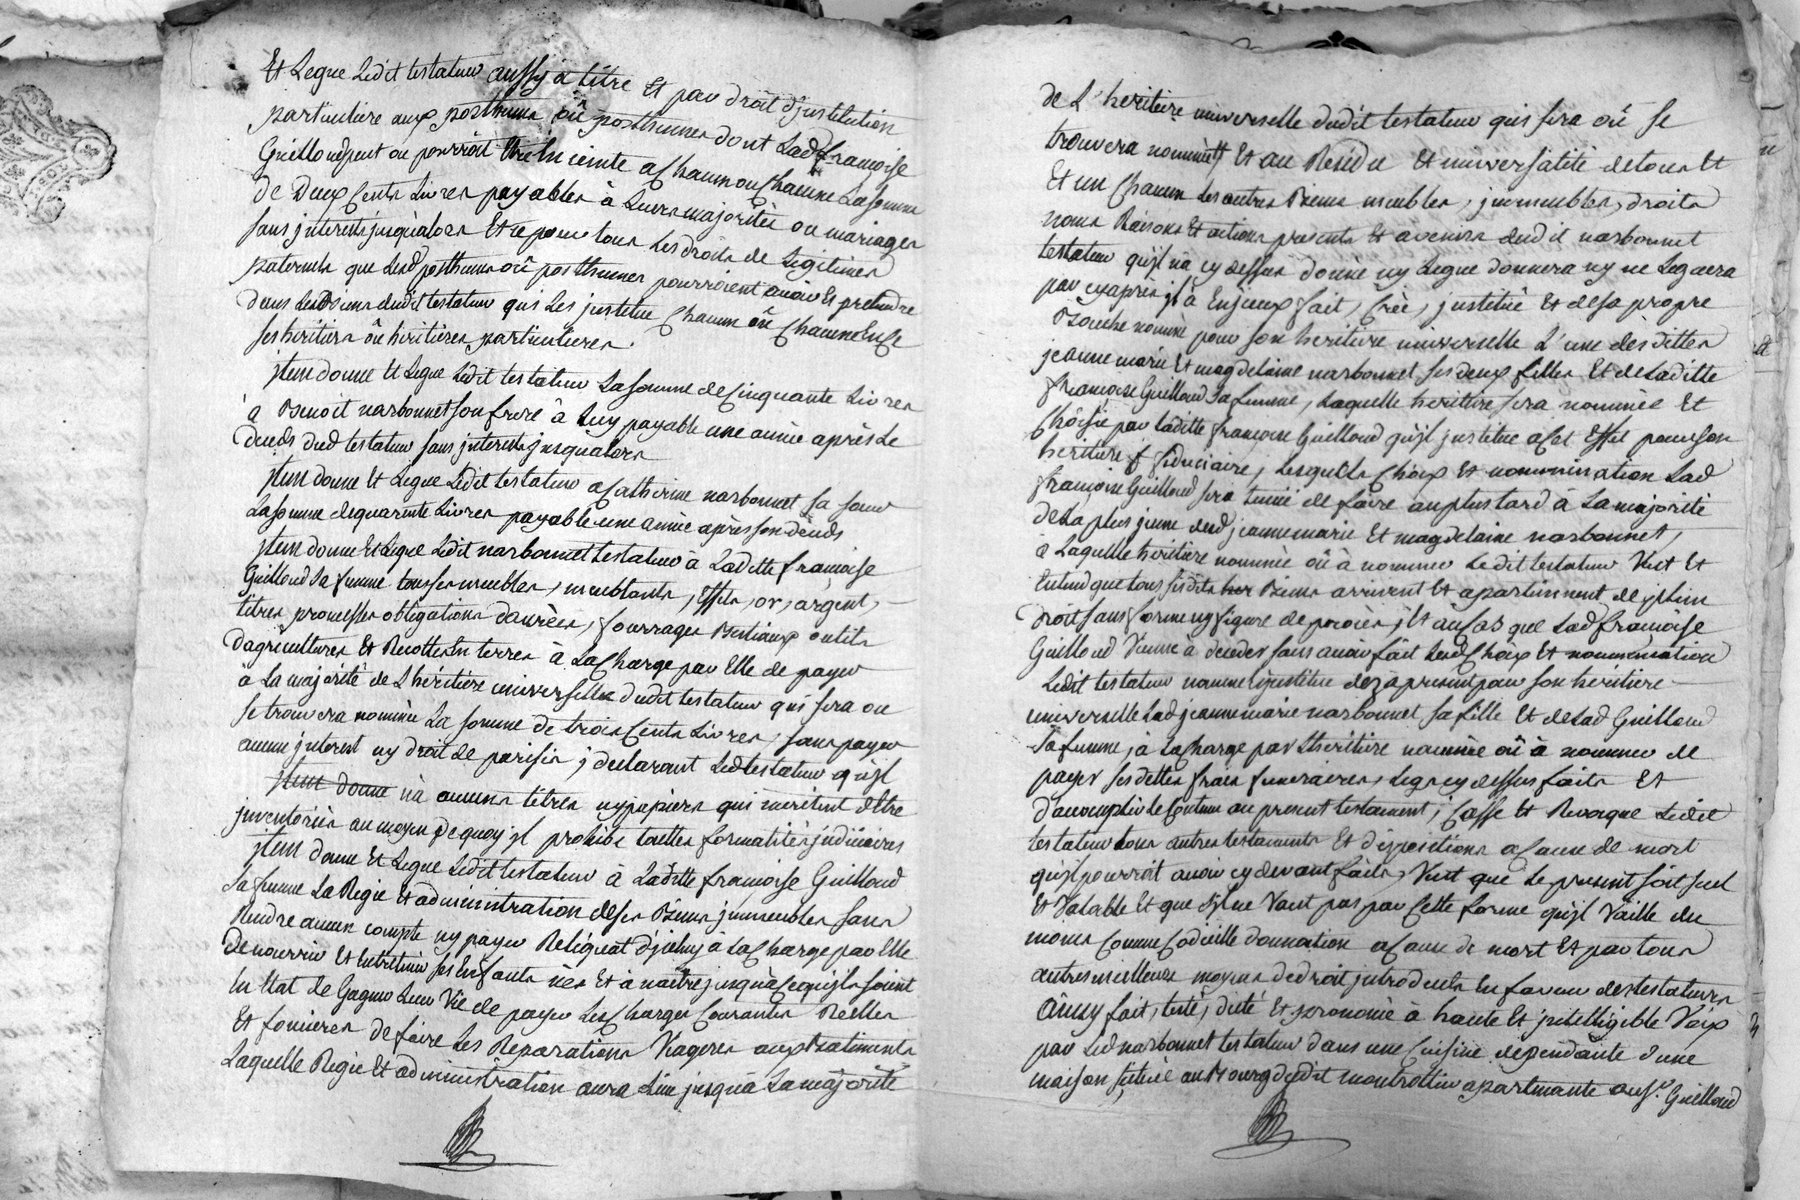 Et Legue Ledit testateur aussy à titre Et par droit d'justitution
particuliere aux posthume où posthumes dont Lad françoise
Guilloud peut ou pourroit Etre Enceinte a Chacun ou Chacune La somme
de Deux Cents Livres payables à Leurs majorités ou mariages
sans jnterets jusqualors Et ce pour tous Les droits de Legitimes
paternels que Lesd posthumes où posthumes pourroient avoir Et pretendre
dans Les Biens dudit testateur qui Les jnstitue Chacun où Chacune En Ce
ses heritiers où heritieres particulieres.
jtem donne Et Legue Ledit testateur La somme de Cinquante Livres
à Benoit narbonnet son frere à Luy payable une année après Le
deceds dud testateur sans jnterets jusqualors
jtem donne Et Legue Ledit testateur a Catherine narbonnet sa soeur
La somme de quarente Livres payable une année après son deceds
jtem donne Et Legue Ledit narbonnet testateur à Laditte françoise
Guilloud sa femme tous ses meubles, meublants, Effets, or, argent,
titres promesses obligations danrées, fourrages Bestiaux outils
d'agricultures Et Recoltes En terres à La Charge par Elle de payer
a La majorité de L'héritière universelle dudit testateur qui sera ou
se trouvera nommée La somme de trois Cents Livres, sans payer
aucun jnterest ny droit de parisis; declarant Led testateur qu'jl
jtem donne nà aucuns titres ny papiers qui meritent detre
jnventoriés au moyen de quoy jl prohibe touttes formalités judiciaires
jtem donne Et Legue Ledit testateur à Laditte françoise Guilloud
sa femme La Regie Et administration de ses Biens jmmeubles sans
Rendre aucun compte ny payer Reliquat d'jcelluy à La Charge par Elle
De nourrir Et Entretenir ses Enfants nés Et à naître jusquà Ce quils soient
En Etat de Gagner Leur Vie de payer Les Charges Courantes Réelles
Et foncieres de faire Les Reparations Viageres aux Batiments
Laquelle Regie Et administration aura Lieu jusquà La majorité
de L'heritiere universelle dudit testateur qui sera où se
trouvera nommée Et au Residu Et universalité de tous Et
Et un Chacun Les autres Biens meubles, jmmeubles, droits
noms Raisons Et actions presents Et avenirs dudit narbonnet
testateur qu'jl nà cy dessus donné ny Legué donnera ny ne Leguera
par cy après jl à Enjceux fait, Créé, jnstitué Et de sa propre
Bouche nommé pour son heritiere universelle L'une des dittes
jeanne marie Et magdelaine narbonnet ses deux filles Et de Laditte
françoise Guilloud sa femme, Laquelle heritiere sera nommée Et
Choisie par Laditte françoise Guilloud qu'jl jnstitue a Cet Effet pour son
heritiere fiduciaire, Lesquels Choix Et nommination Lad
françoise Guilloud sera tenüe de faire au plus tard à La majorité
de La plus jeune desd jeanne marie Et magdelaine narbonnet,
à Laquelle heritiere nommée où à nommer Ledit testateur Veut Et
Entend que tous sesdits Biens arrivent Et apartiennent de plein
droit sans forme ny figure de procès; Et au Cas que Lad françoise
Guilloud Vienne à deceder sans avoir fait Lesd Choix Et nommination
Ledit testateur nomme Et jnstitue dez a present pour son heritiere
universelle Lad jeanne marie narbonnet sa fille Et de Lad Guilloud
sa femme; à La Charge par Lheritiere nommée où à nommer de
payer ses dettes frais funeraires, Legs cy dessus faits Et
d'accomplir Le Contenu au present testament; Casse Et Revoque Ledit
testateur tous autres testaments Et dispositions a Cause de mort
qu'jl pourroit avoir cy devant faits, Veut que Le present soit seul
Et Valable Et que s'jl ne Vaut pas par Cette forme qu'jl Vaille du
moins Comme Codicille donnation a Cause de mort Et par tous
autres meilleurs moyens de droit jntroduits En faveur des testateurs
Ainsy fait, testé, dicté Et prononcé à haute Et jntelligible Voix
par Led narbonnet testateur dans une Cuisine dependante d'une
maison située au Bourg dudit montrottier apartenante au sr. Guilloud